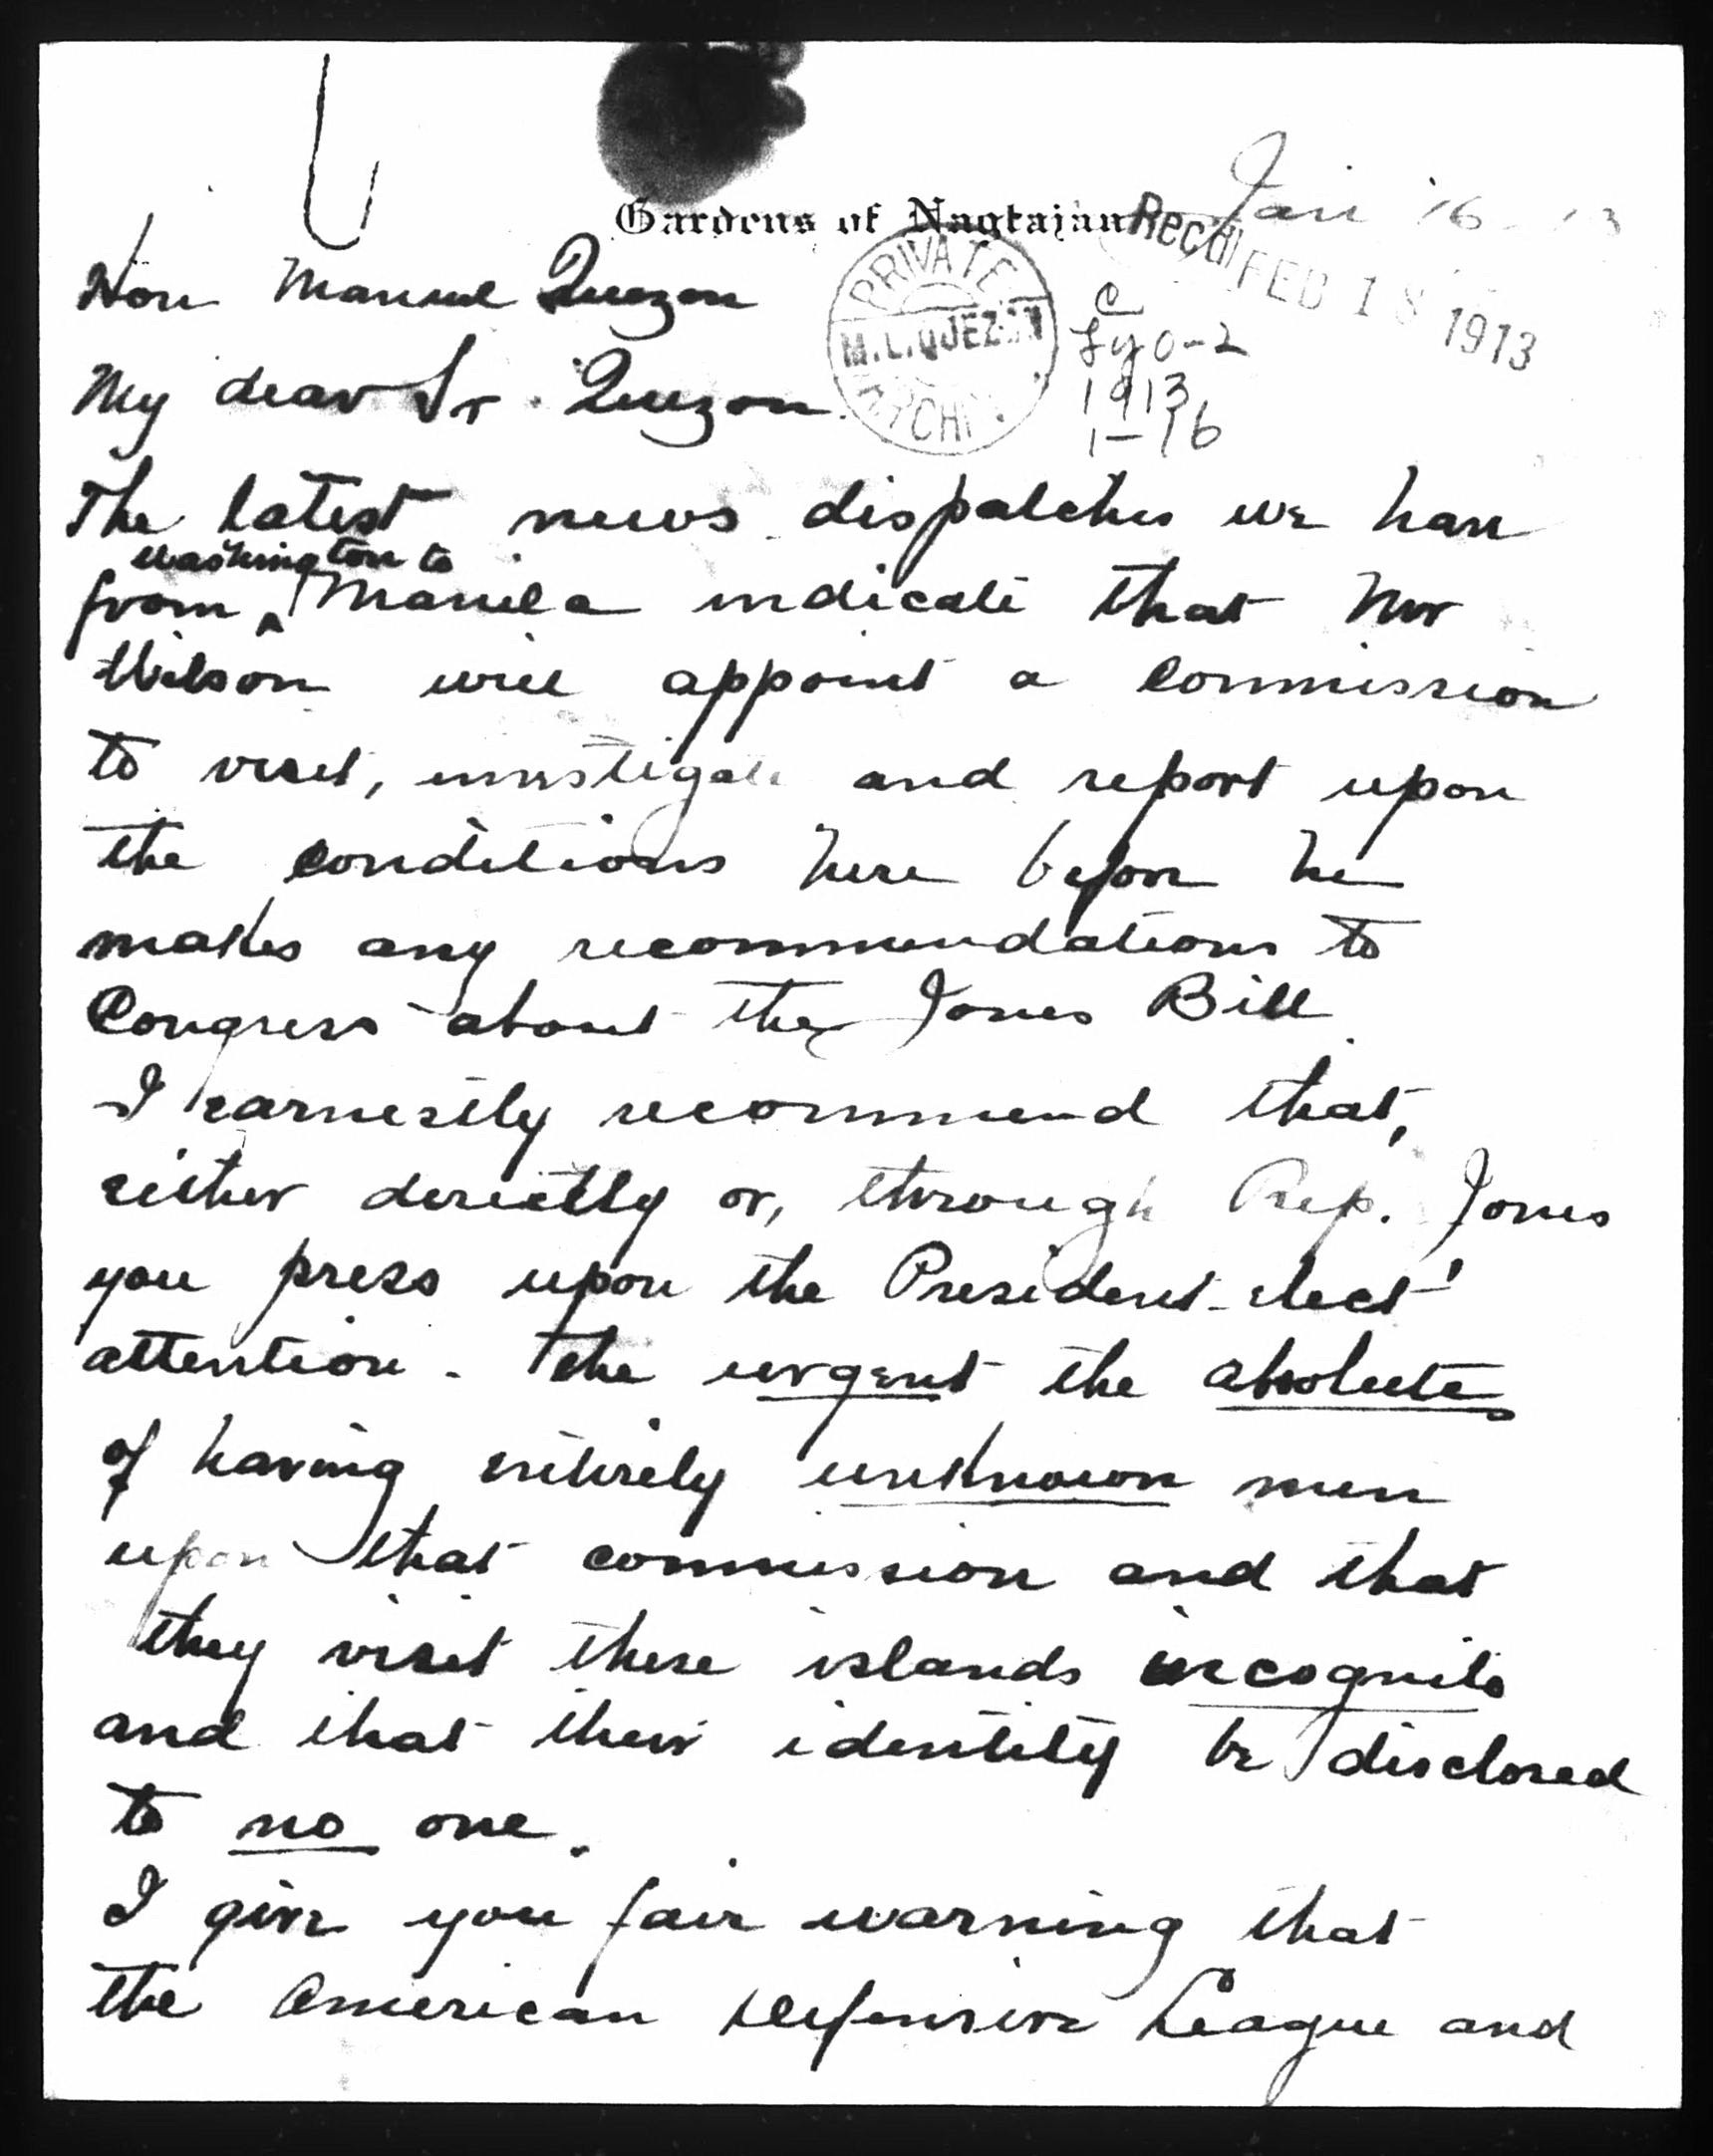 Jan 16 - 13
Gardens of Nagtajan
Recd FEB 18 1913
Hon Manuel Quezon
PRIVATE
M.L. QUEZON
C
My dear Sr. Quezon.
1913
1-16
The latest news dispatches we have
Washington to
from ^ Manila indicate that Mr
Wilson will appoint a Commission
to visit, investigate and report upon
the conditions here before he
makes any recommendations to
Congress about the Jones Bill
I earnestly recommend that,
either directly or, through Rep. Jones
you press upon the President-elect'
attention. The urgent the absolute
of having entirely unknown men
upon that commission and that
they visit these islands incognito
and that their identity be disclosed
to no one.
I give you fair warning that
the American Defensive League and